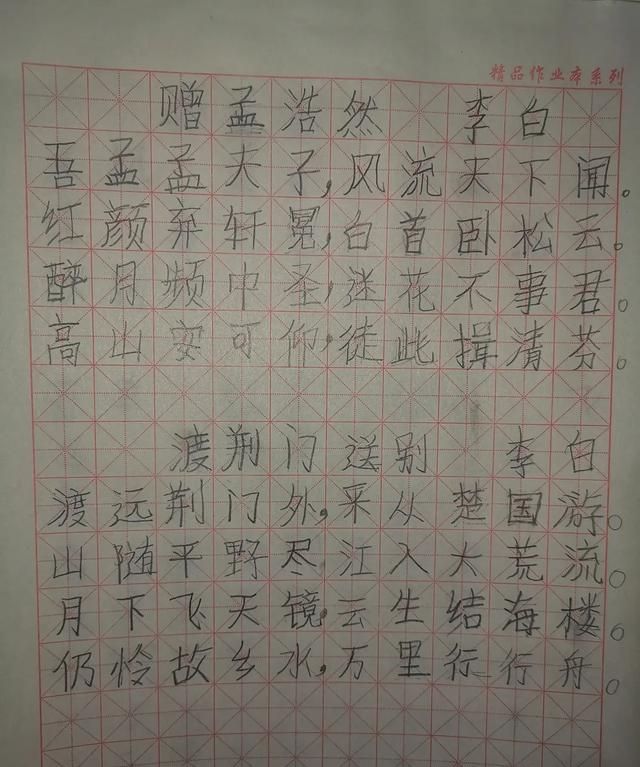 精品作业本系列
赠孟浩然 李白
吾孟孟夫子,风流天下闻。
红颜弃轩冕,白首卧松云。
醉月频中圣,迷花不事君。
高山安可仰,徒此揖清芬。
渡荆门送别 李白
渡远荆门外,来从楚国游。
山随平野尽,江入大荒流。
月下飞天镜,云生结海楼。
仍怜故乡水,万里行行舟。